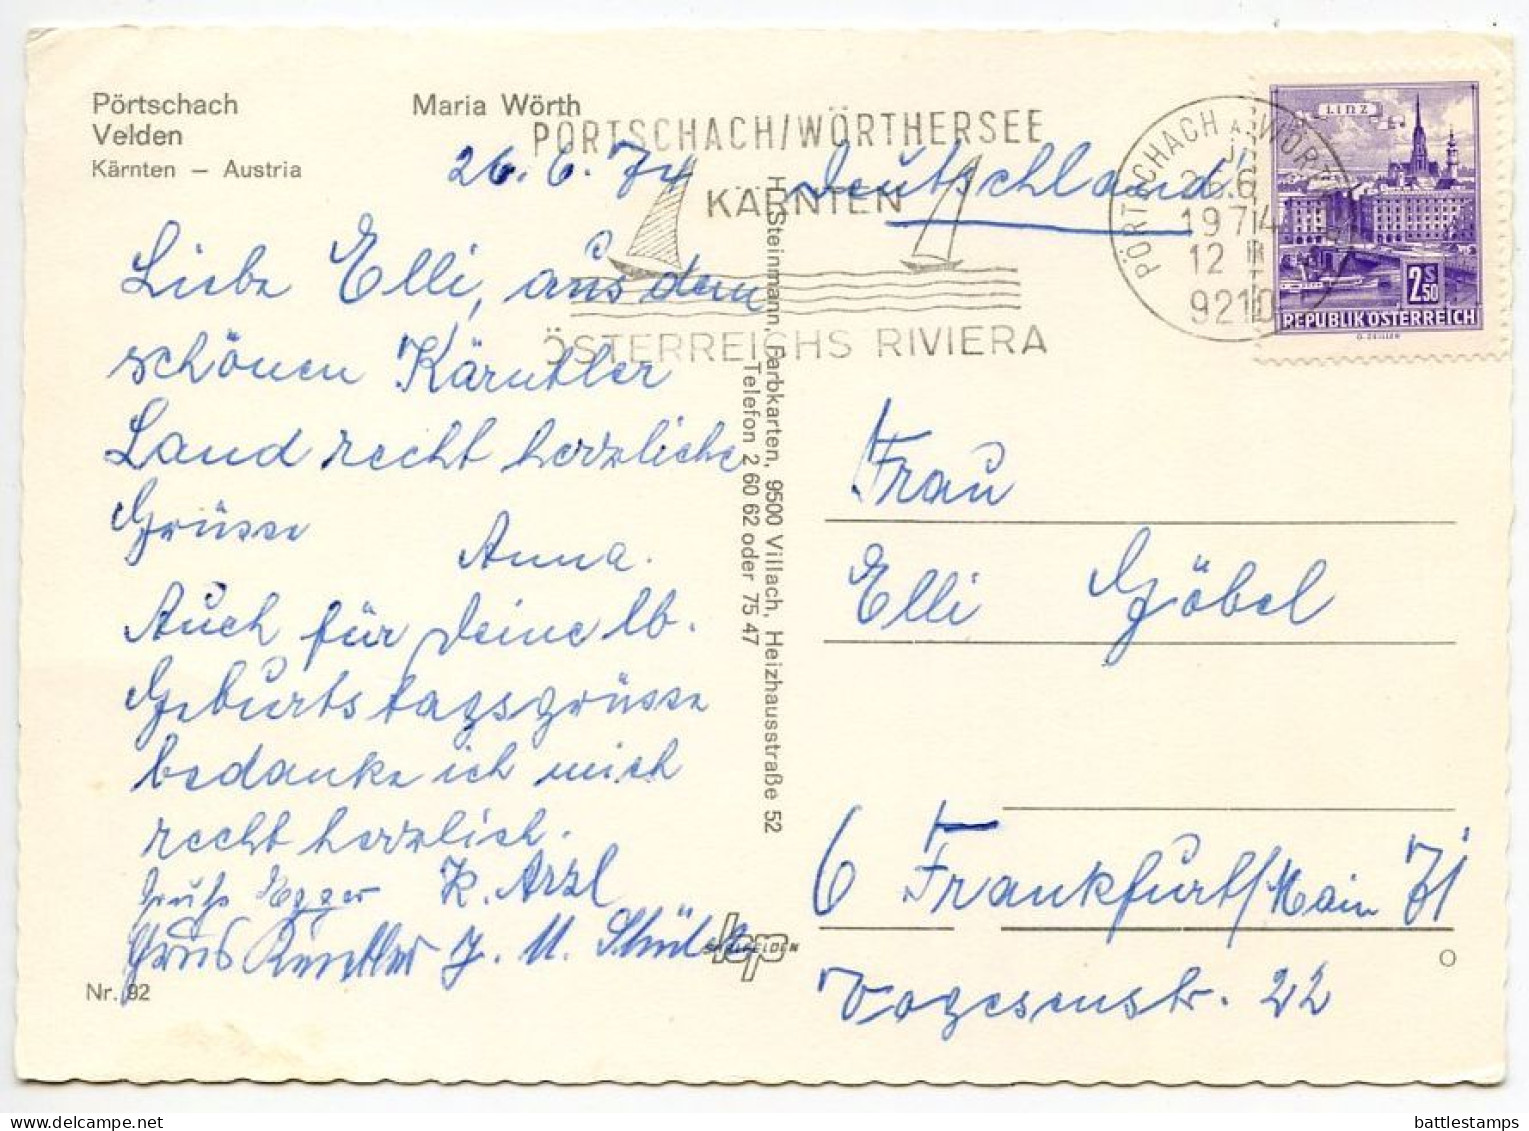 Pörtschach
Velden
Kärnten – Austria
Maria Wörth
PÖRTSCHACH/WÖRTHERSEE
KÄRNTEN
ÖSTERREICHS RIVIERA
26.6.74
Liebe Elli, aus dem
schönen Kärntler
Land recht herzliche
Grüsse
Anna.
Auch für Deine lb.
Geburtstagsgrüsse
bedanke ich mich
recht herzlich.
Egger K. Arzl
Gruß J. M.
Nr. 92
H. Steinmann, Farbkarten, 9500 Villach, Heizhausstraße 52
Telefon 2 60 62 oder 75 47
SAALFELDEN
Deutschland
PÖRTSCHACH A.
26.6
1974
12
9210
LINZ
2 S 50
REPUBLIK ÖSTERREICH
Frau
Elli Göbel
6 Frankfurt/Main 71
Vogesenstr. 22
battlestamps